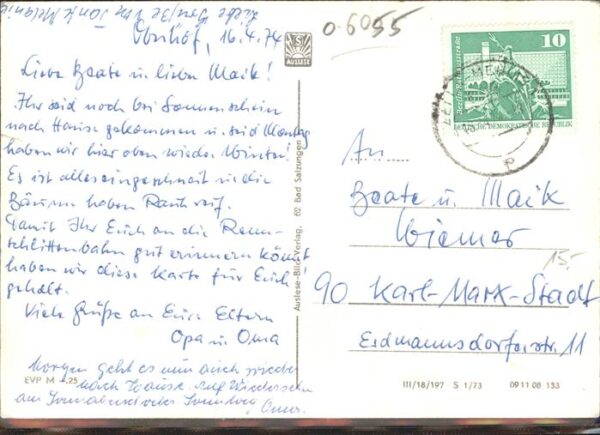 Liebe Grüße Ihr
Oberhof, 16.4.74
Liebe Beate u. lieber Maik!
Ihr seid noch bei Sonnenschein
nach Hause gekommen u. seid Montag
haben wir hier oben wieder Winter!
Es ist alles eingeschneit u. die
Bäume haben Rauhreif.
Damit Ihr Euch an die Renn-
schlittenbahn gut erinnern könnt
haben wir diese Karte für Euch
gekauft.
Viele Grüße an Eure Eltern
Opa u. Oma
Morgen geht es nun auch wieder
nach Hause. Auf Wiedersehn
am Sonnabend oder Sonntag Oma.
EVP M -.25
AUSLESE
Auslese-Bild-Verlag, 62 Bad Salzungen
0-6055
10
Berlin, Rathausstraße
DEUTSCHE DEMOKRATISCHE REPUBLIK
An
Beate u. Maik
Wiemer
15,-
90 Karl-Marx-Stadt
Erdmannsdorferstr. 11
III/18/197 S 1/73 09 11 08 133